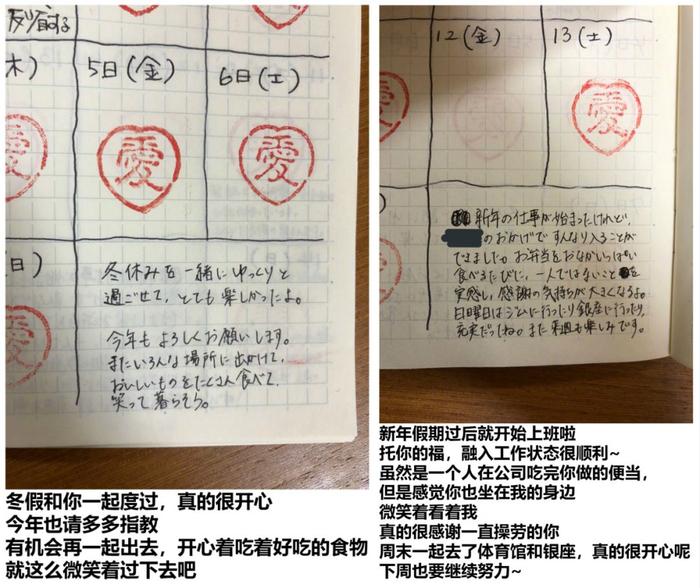 5日(金)
6日(土)
木)
愛
愛
日)
冬休みを一緒にゆっくりと
過ごせて、とても楽しかったよ。
今年もよろしくお願いします。
またいろんな場所に出かけて、
おいしいものをたくさん食べて、
笑って暮らそう。
冬假和你一起度过，真的很开心
今年也请多多指教
有机会再一起出去，开心着吃着好吃的食物
就这么微笑着过下去吧
12(金)
13(土)
愛
新年の仕事が始まったけれど、
のおかげですんなり入ることが
できました。お弁当をおなかいっぱい
食べるたびに、一人ではないことを
実感し、感謝の気持ちが大きくなるよ。
日曜日はジムに行ったり銀座に行ったり、
充実だったね。また来週も楽しみです。
新年假期过后就开始上班啦
托你的福，融入工作状态很顺利~
虽然是一个人在公司吃完你做的便当，
但是感觉你也坐在我的身边
微笑着看着我
真的很感谢一直操劳的你
周末一起去了体育馆和银座，真的很开心呢
下周也要继续努力~